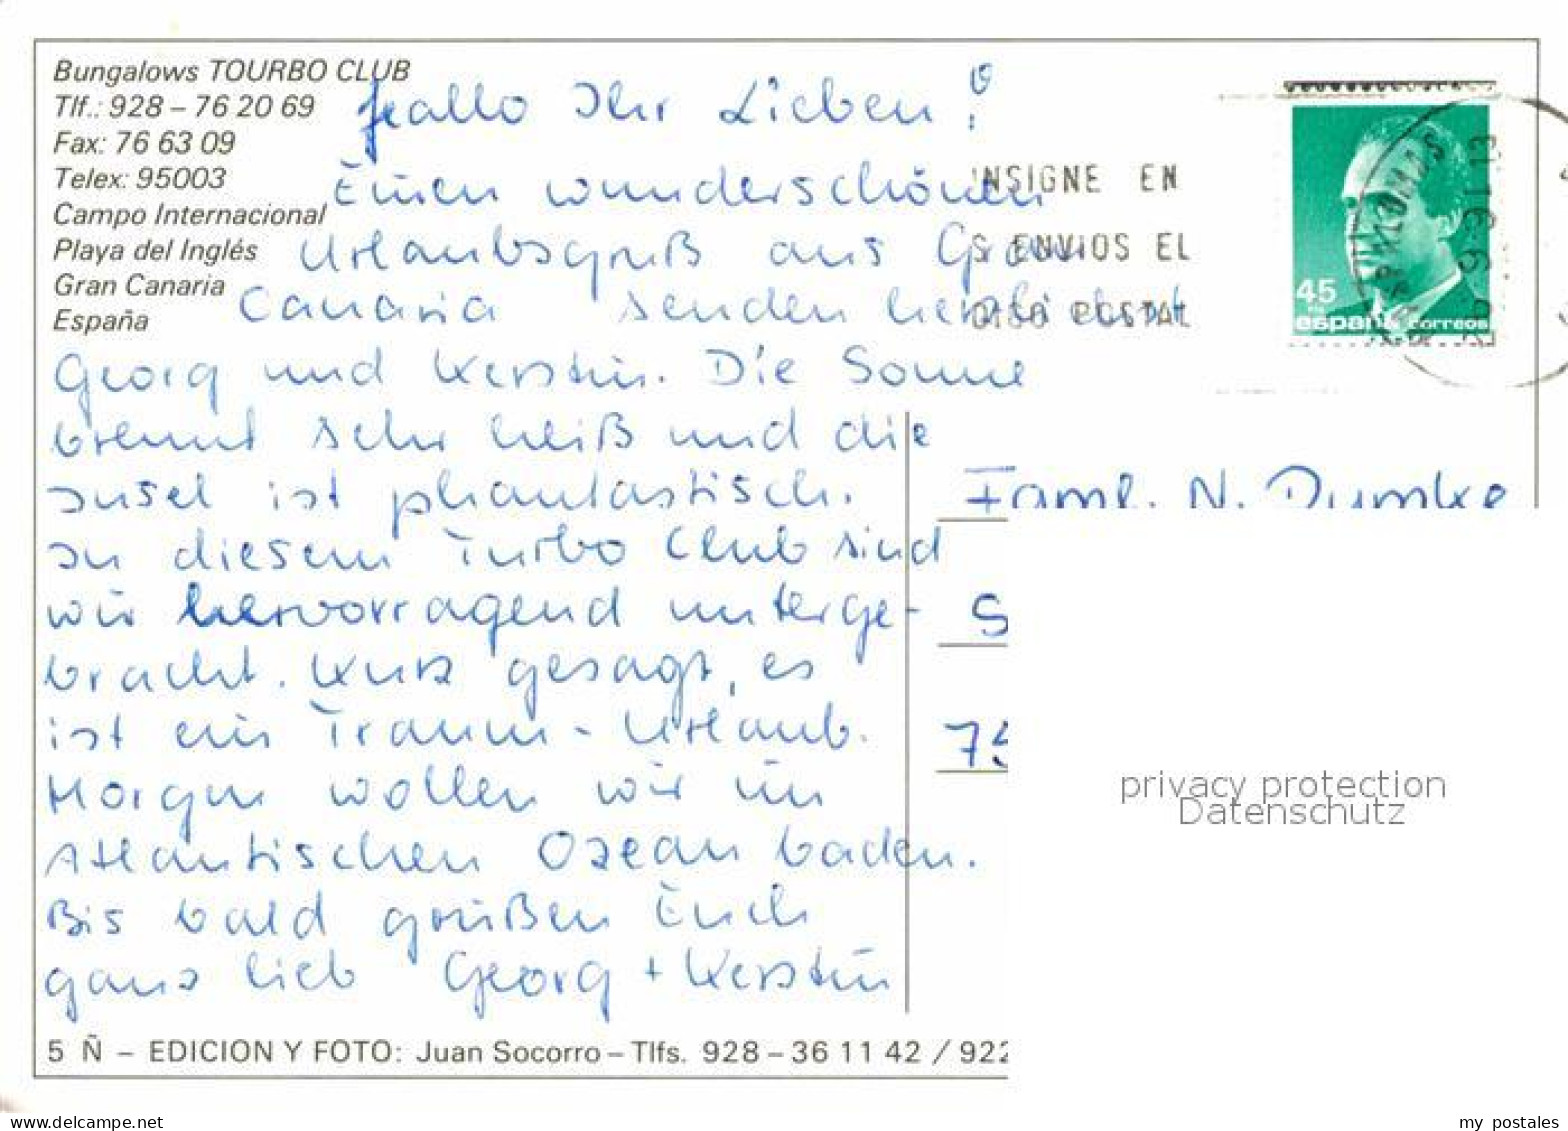 Bungalows TOURBO CLUB
Tlf.: 928 – 76 20 69
Fax: 76 63 09
Telex: 95003
Campo Internacional
Playa del Inglés
Gran Canaria
España
Hallo Ihr Lieben!
Einen wunderschönen
Urlaubsgruß aus Gran
Canaria senden herzlichst
Georg und Kerstin. Die Sonne
brennt sehr heiß und die
Insel ist phantastisch.
In diesem Turbo Club sind
wir hervorragend unterge-
bracht. Kurz gesagt, es
ist ein Traum - Urlaub.
Morgen wollen wir im
Atlantischen Ozean baden.
Bis bald grüßen Euch
ganz lieb Georg + Kerstin
INSIGNE EN
S ENVIOS EL
POSTAL
45
españa correos
Faml. N. Dumke
S
75
privacy protection
Datenschutz
5 Ñ – EDICION Y FOTO: Juan Socorro – Tlfs. 928 – 36 11 42 / 922
www.delcampe.net
my_postales